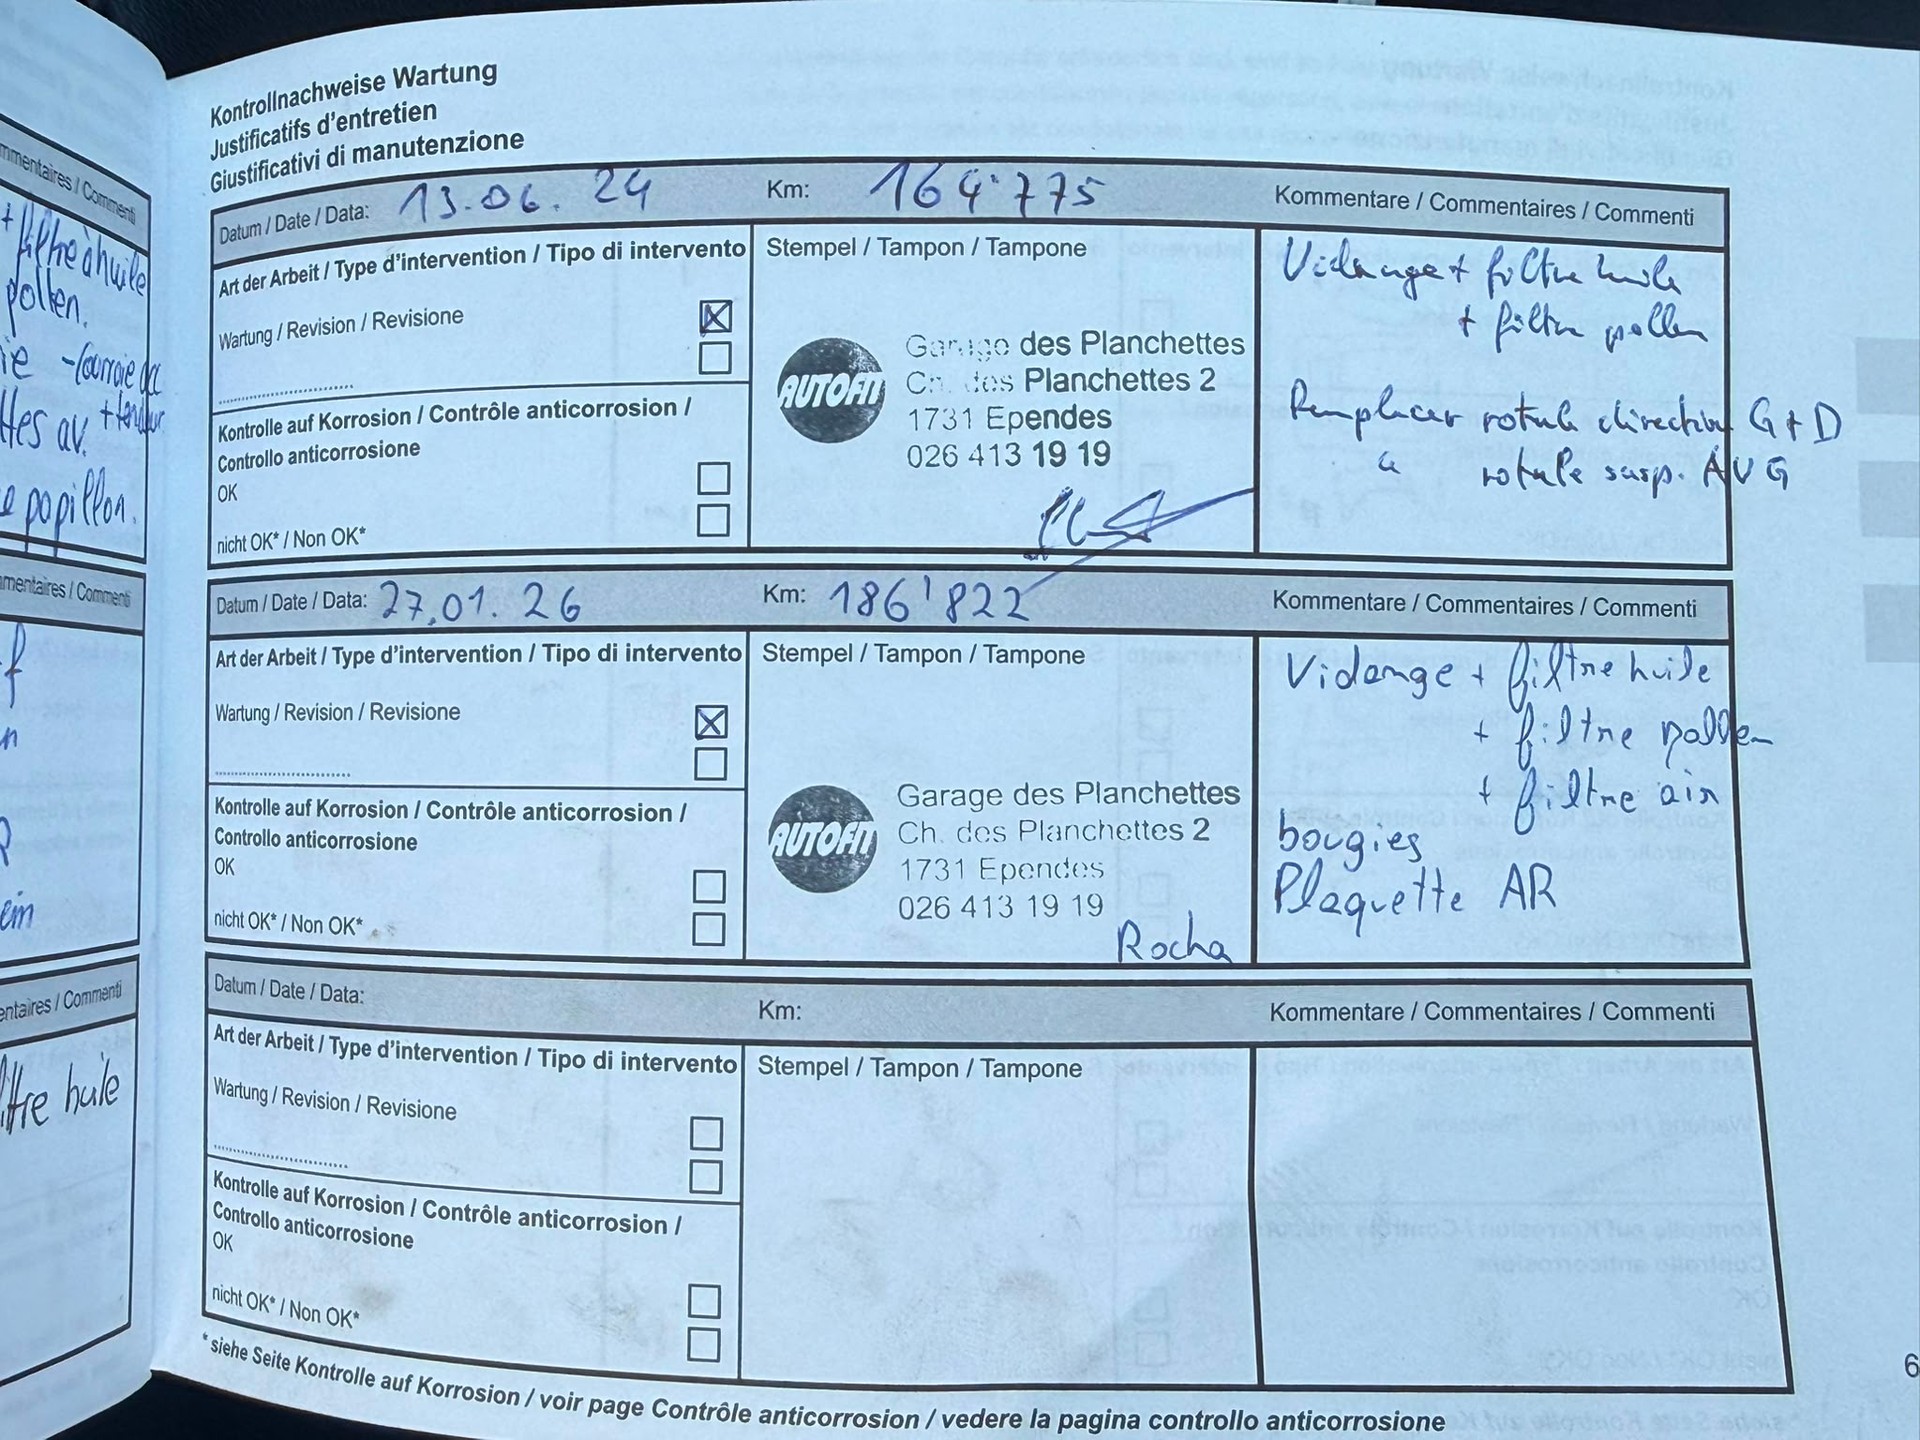 mmentaires / Commenti
+ filtre à huile
pollen.
ie - Courroie
ttes av.
e papillon.
mmentaires / Commenti
ein
entaires / Commenti
ltre huile
Kontrollnachweise Wartung
Justificatifs d'entretien
Giustificativi di manutenzione
Datum / Date / Data: 13.06. 24 Km: 164'775 Kommentare / Commentaires / Commenti
Art der Arbeit / Type d'intervention / Tipo di intervento
Wartung / Revision / Revisione
Kontrolle auf Korrosion / Contrôle anticorrosion /
Controllo anticorrosione
OK
nicht OK* / Non OK*
Stempel / Tampon / Tampone
AUTOFIT
Garage des Planchettes
Ch. des Planchettes 2
1731 Ependes
026 413 19 19
Vidange + filtre huile
+ filtre pollen
Remplacer rotule direction G + D
rotule susp. AVG
Datum / Date / Data: 27.01. 26 Km: 186'822 Kommentare / Commentaires / Commenti
Art der Arbeit / Type d'intervention / Tipo di intervento
Wartung / Revision / Revisione
Kontrolle auf Korrosion / Contrôle anticorrosion /
Controllo anticorrosione
OK
nicht OK* / Non OK*
Stempel / Tampon / Tampone
AUTOFIT
Garage des Planchettes
Ch. des Planchettes 2
1731 Ependes
026 413 19 19
Rocha
Vidange + filtre huile
+ filtre pollen
+ filtre air
bougies
Plaquette AR
Datum / Date / Data: Km: Kommentare / Commentaires / Commenti
Art der Arbeit / Type d'intervention / Tipo di intervento
Wartung / Revision / Revisione
Kontrolle auf Korrosion / Contrôle anticorrosion /
Controllo anticorrosione
OK
nicht OK* / Non OK*
Stempel / Tampon / Tampone
* siehe Seite Kontrolle auf Korrosion / voir page Contrôle anticorrosion / vedere la pagina controllo anticorrosione
6